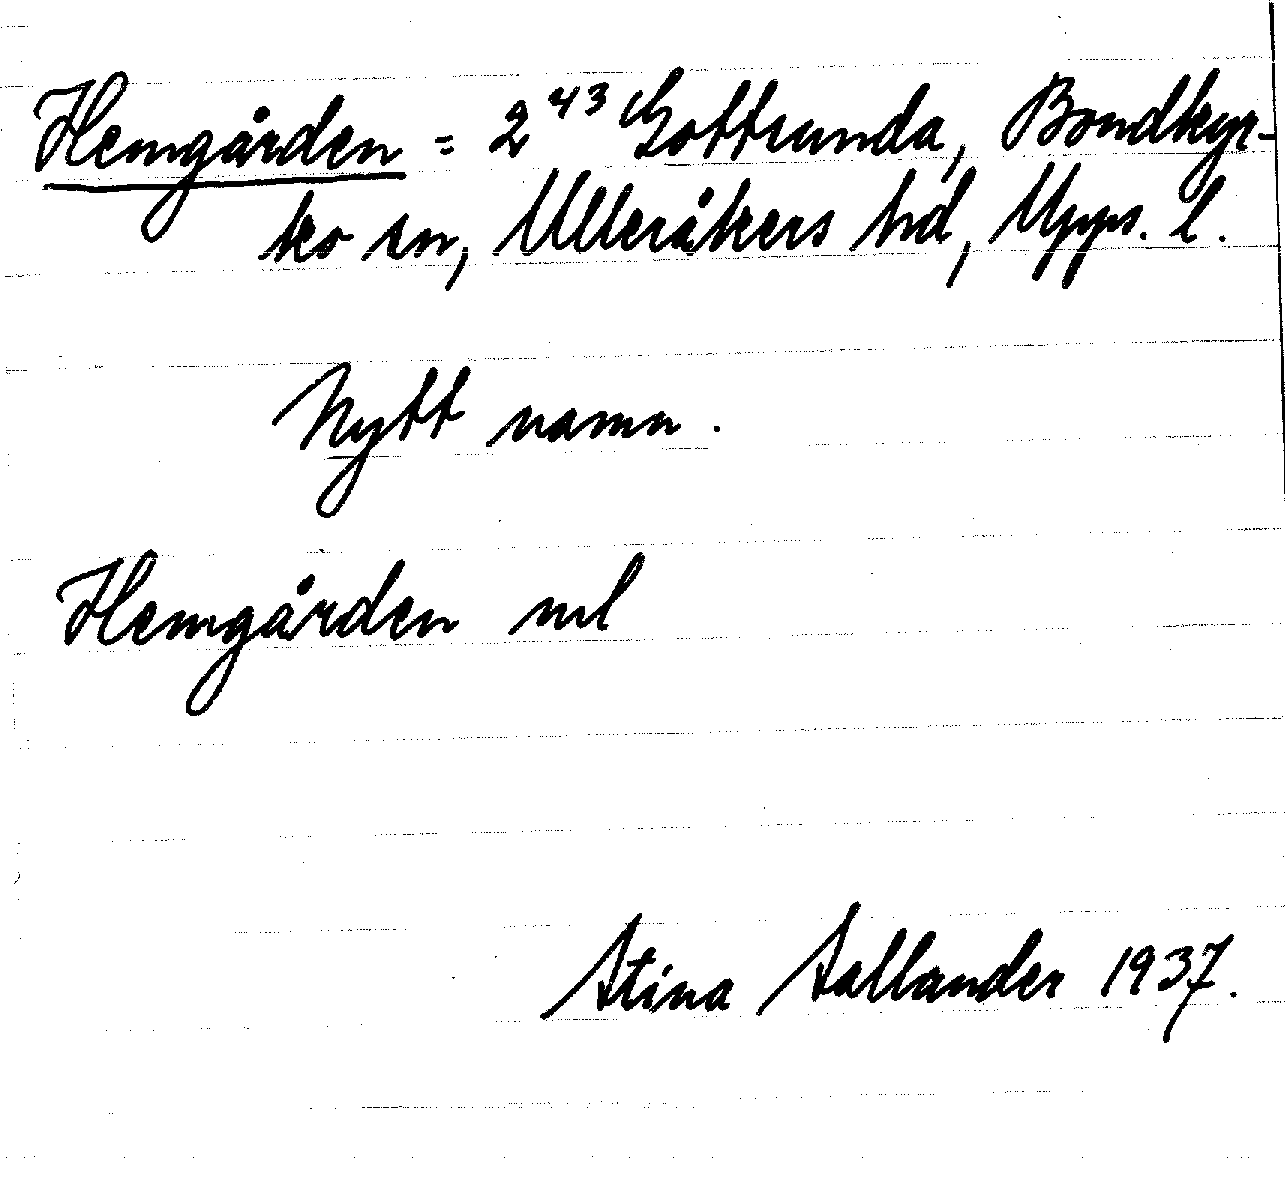 Hemgården = 2⁴³ Gottsunda, Bondkyr-
ko sn, Ulleråkers hd, Upps. l.
Nytt namn.
Hemgården ml
Stina Sallander 1937.